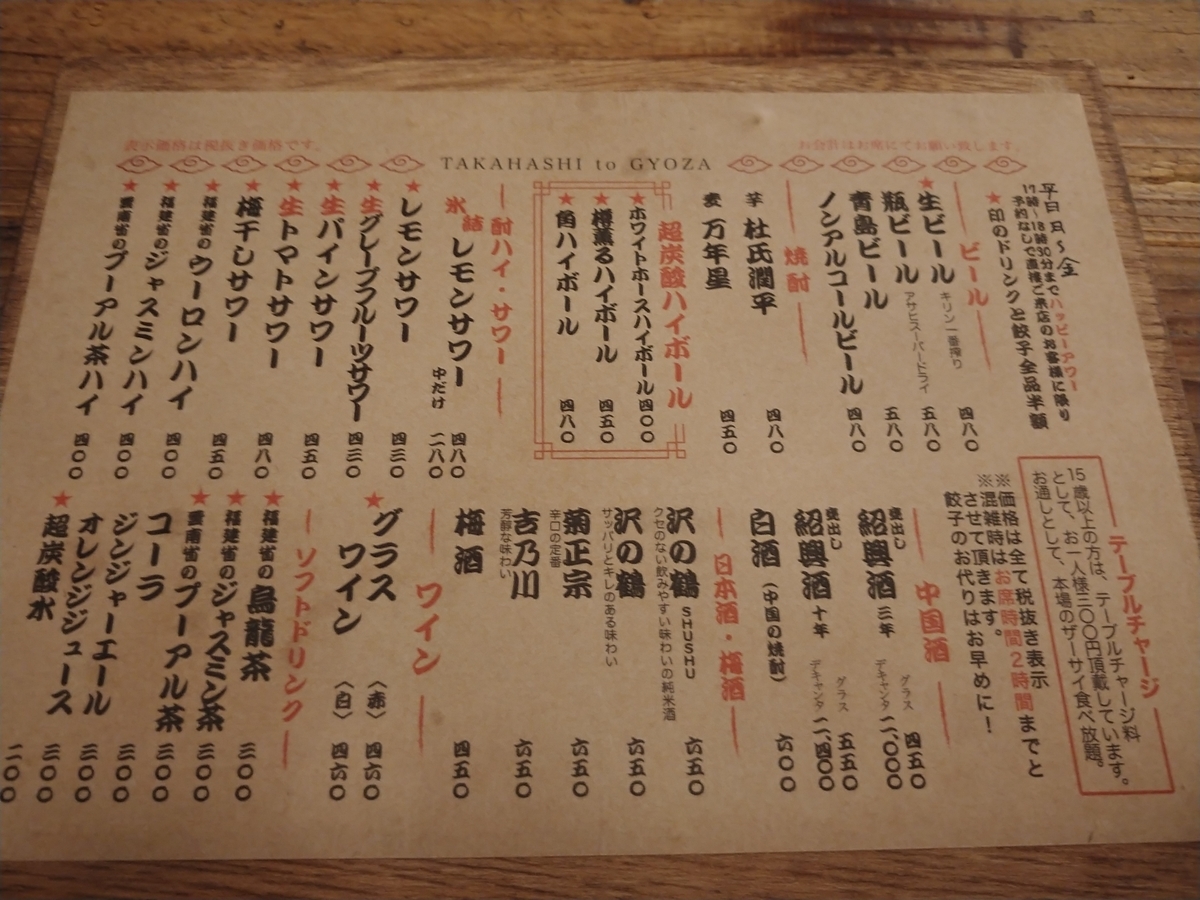 お会計はお席にてお願い致します。
TAKAHASHI to GYOZA
表示価格は税抜き価格です。
平日 月～金
17時～18時30分までハッピーアワー
予約なしで直接ご来店のお客様に限り
★印のドリンクと餃子全品半額
ビール
★生ビール キリン一番搾り 四八〇
瓶ビール アサヒスーパードライ 五八〇
青島ビール 五八〇
ノンアルコールビール 四八〇
焼酎
芋 杜氏潤平 四八〇
麦 万年星 四五〇
超炭酸ハイボール
★ホワイトホースハイボール 四〇〇
★樽薫るハイボール 四五〇
★角ハイボール 四八〇
酎ハイ・サワー
氷結レモンサワー 四八〇
中だけ 二八〇
★レモンサワー 四三〇
★生グレープフルーツサワー 四三〇
★生パインサワー 四五〇
★生トマトサワー 四八〇
★梅干しサワー 四五〇
★福建省のウーロンハイ 四〇〇
★福建省のジャスミンハイ 四〇〇
★雲南省のプーアル茶ハイ 四〇〇
テーブルチャージ
15歳以上の方は、テーブルチャージ料
として、お一人様三〇〇円頂戴しています。
お通しとして、本場のザーサイ食べ放題。
※価格は全て税抜き表示
※混雑時はお席時間2時間までと
させて頂きます。
餃子のお代りはお早めに！
中国酒
甕出し 紹興酒 三年 グラス 四五〇
デキャンタ 二、〇〇〇
甕出し 紹興酒 十年 グラス 五五〇
デキャンタ 二、四〇〇
白酒（中国の焼酎） 六〇〇
日本酒・梅酒
沢の鶴 SHUSHU 六五〇
クセのない飲みやすい味わいの純米酒
沢の鶴 六五〇
サッパリとキレのある味わい
菊正宗 六五〇
辛口の定番
吉乃川 六五〇
芳醇な味わい
梅酒 四五〇
ワイン
★グラスワイン〈赤〉 四六〇
〈白〉 四六〇
ソフトドリンク
★福建省の烏龍茶 三〇〇
★福建省のジャスミン茶 三〇〇
★雲南省のプーアル茶 三〇〇
コーラ 三〇〇
ジンジャーエール 三〇〇
オレンジジュース 三〇〇
★超炭酸水 二〇〇